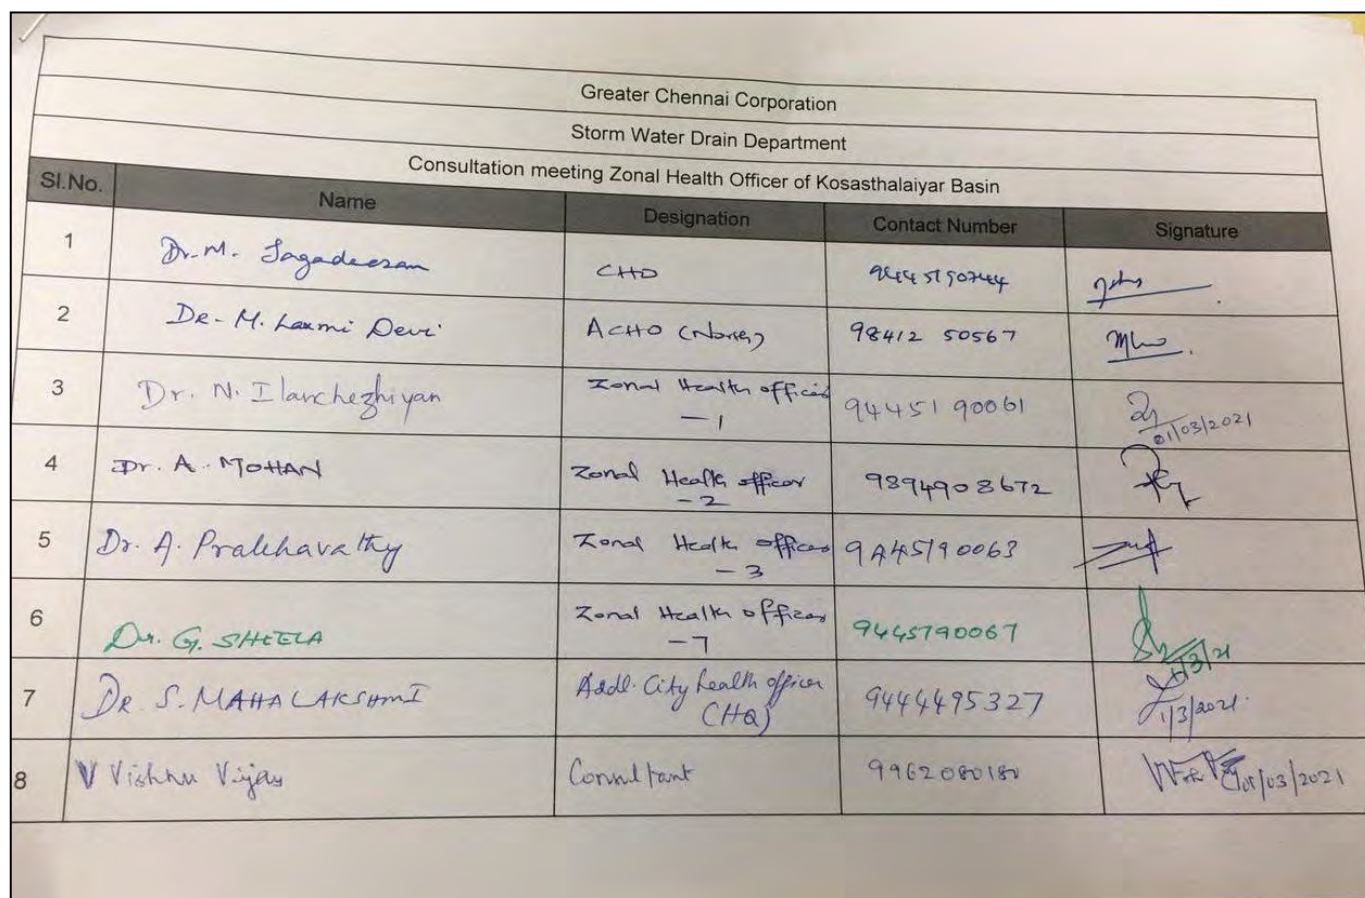 Greater Chennai Corporation
Storm Water Drain Department
Consultation meeting Zonal Health Officer of Kosasthalaiyar Basin
Sl.No. Name Designation Contact Number Signature
1 Dr. M. Jagadeesan CHO
2 De- M. Laxmi Devi ACHO 98412 50567
3 Dr. N. Ilanchezhiyan Zonal Health officer 94451 90061
-1 01/03/2021
4 Dr. A. MOHAN Zonal Health officer 9894908672
-2
5 Dr. A. Prabhavathy Zonal Health officer 9445190063
-3
6 Dr. G. SHEELA Zonal Health officer 9445190067
-7 1/3/21
7 DR. S. MAHALAKSHMI Addl. City health officer 9444495327
(HQ) 1/3/2021
8 V Vishnu Vijay Consultant 9962080180 01/03/2021